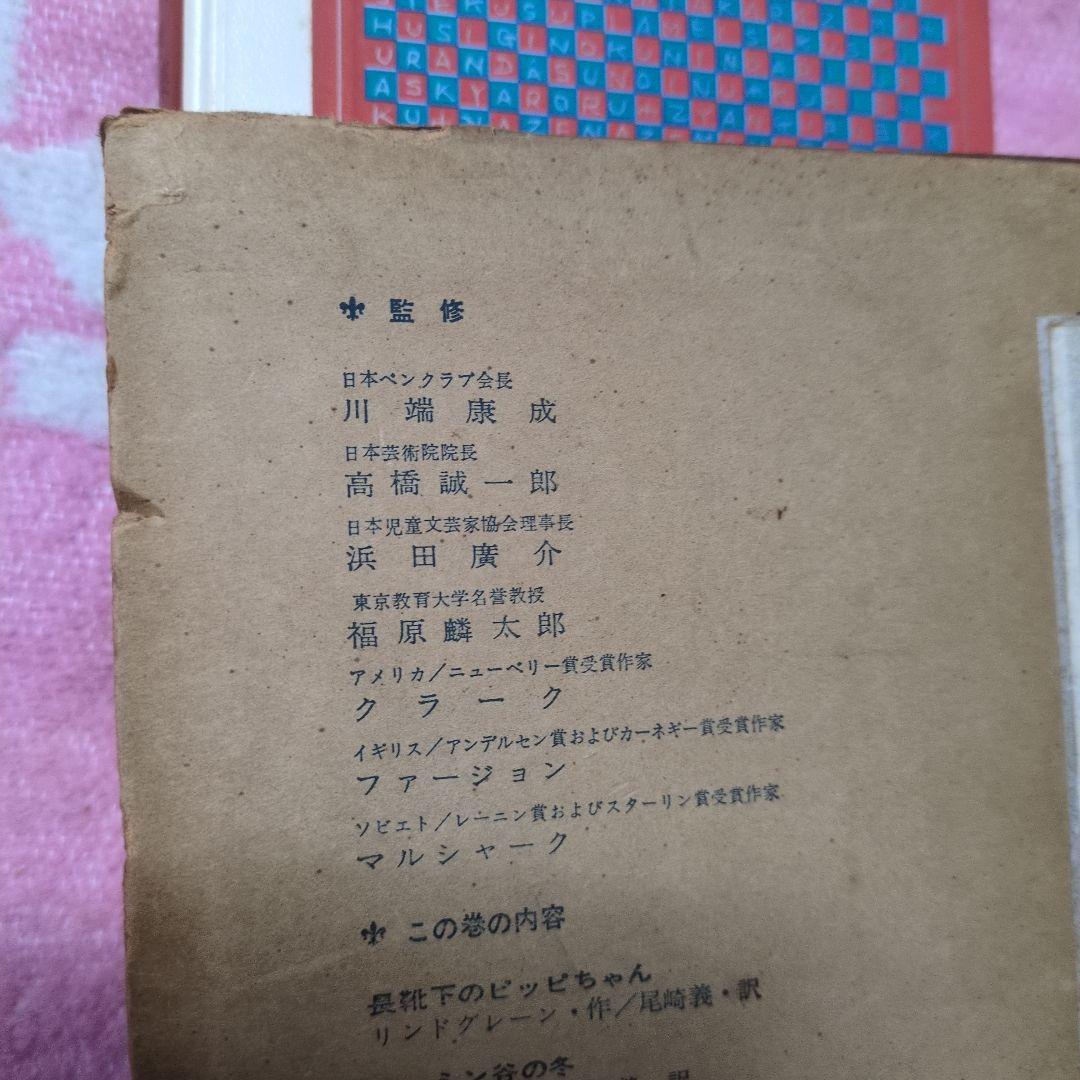 監修
日本ペンクラブ会長
川端康成
日本芸術院院長
高橋誠一郎
日本児童文芸家協会理事長
浜田廣介
東京教育大学名誉教授
福原麟太郎
アメリカ/ニューベリー賞受賞作家
クラーク
イギリス/アンデルセン賞およびカーネギー賞受賞作家
ファージョン
ソビエト/レーニン賞およびスターリン賞受賞作家
マルシャーク
この巻の内容
長靴下のピッピちゃん
リンドグレーン・作/尾崎義・訳
ミン谷の冬
訳